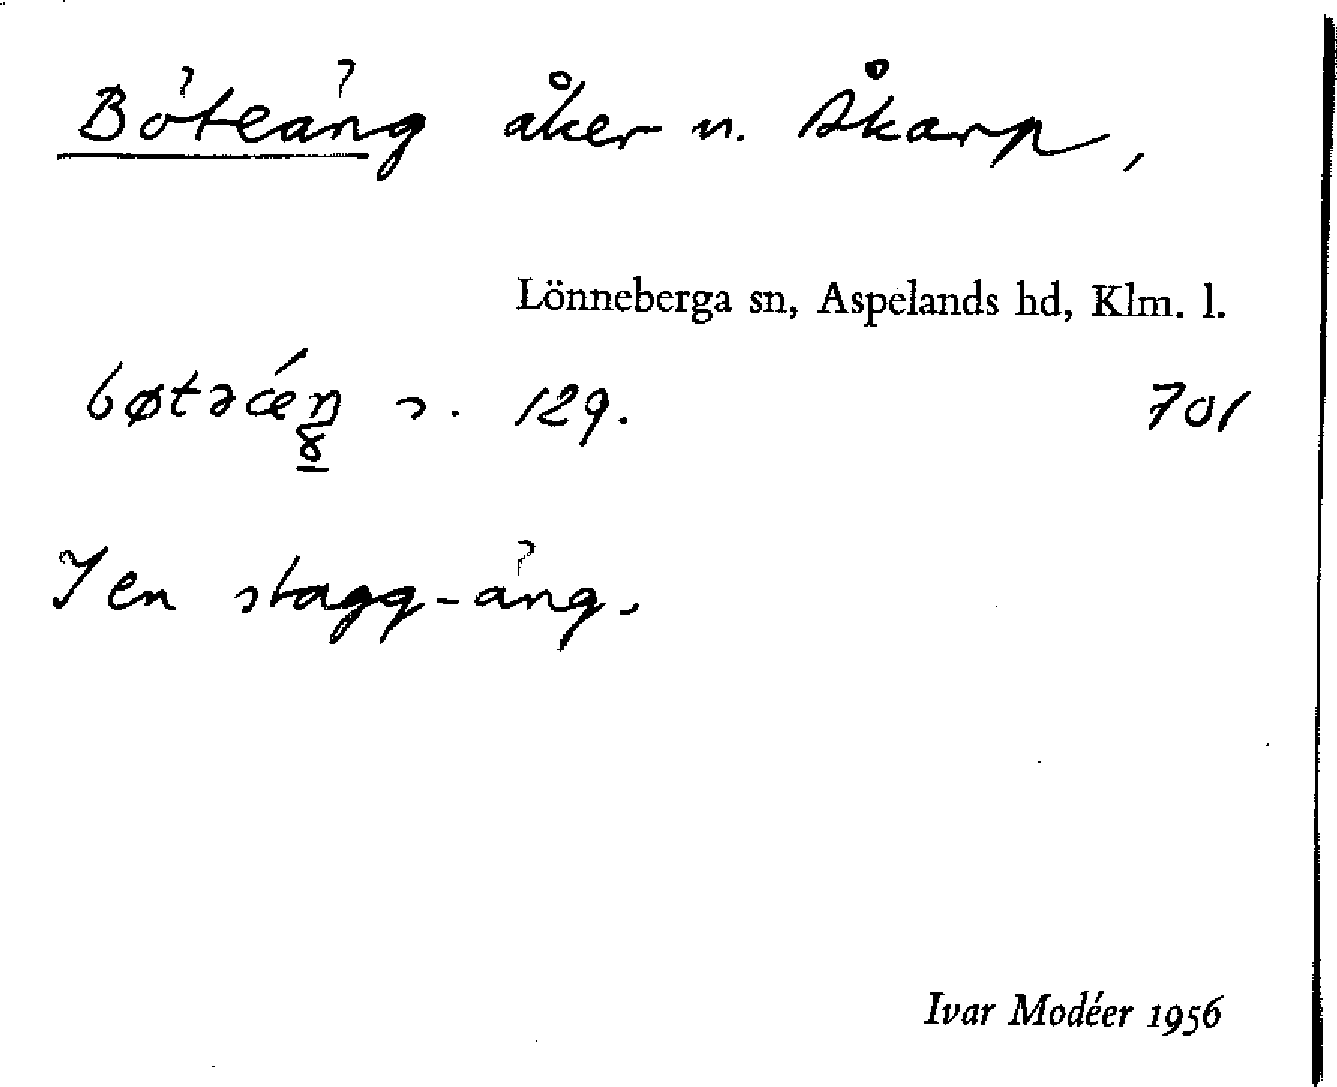 Böteäng åker n. Åkarp,
Lönneberga sn, Aspelands hd, Klm. l.
bøtəǽŋ s. 129. 701
I en stagg-äng.
Ivar Modéer 1956